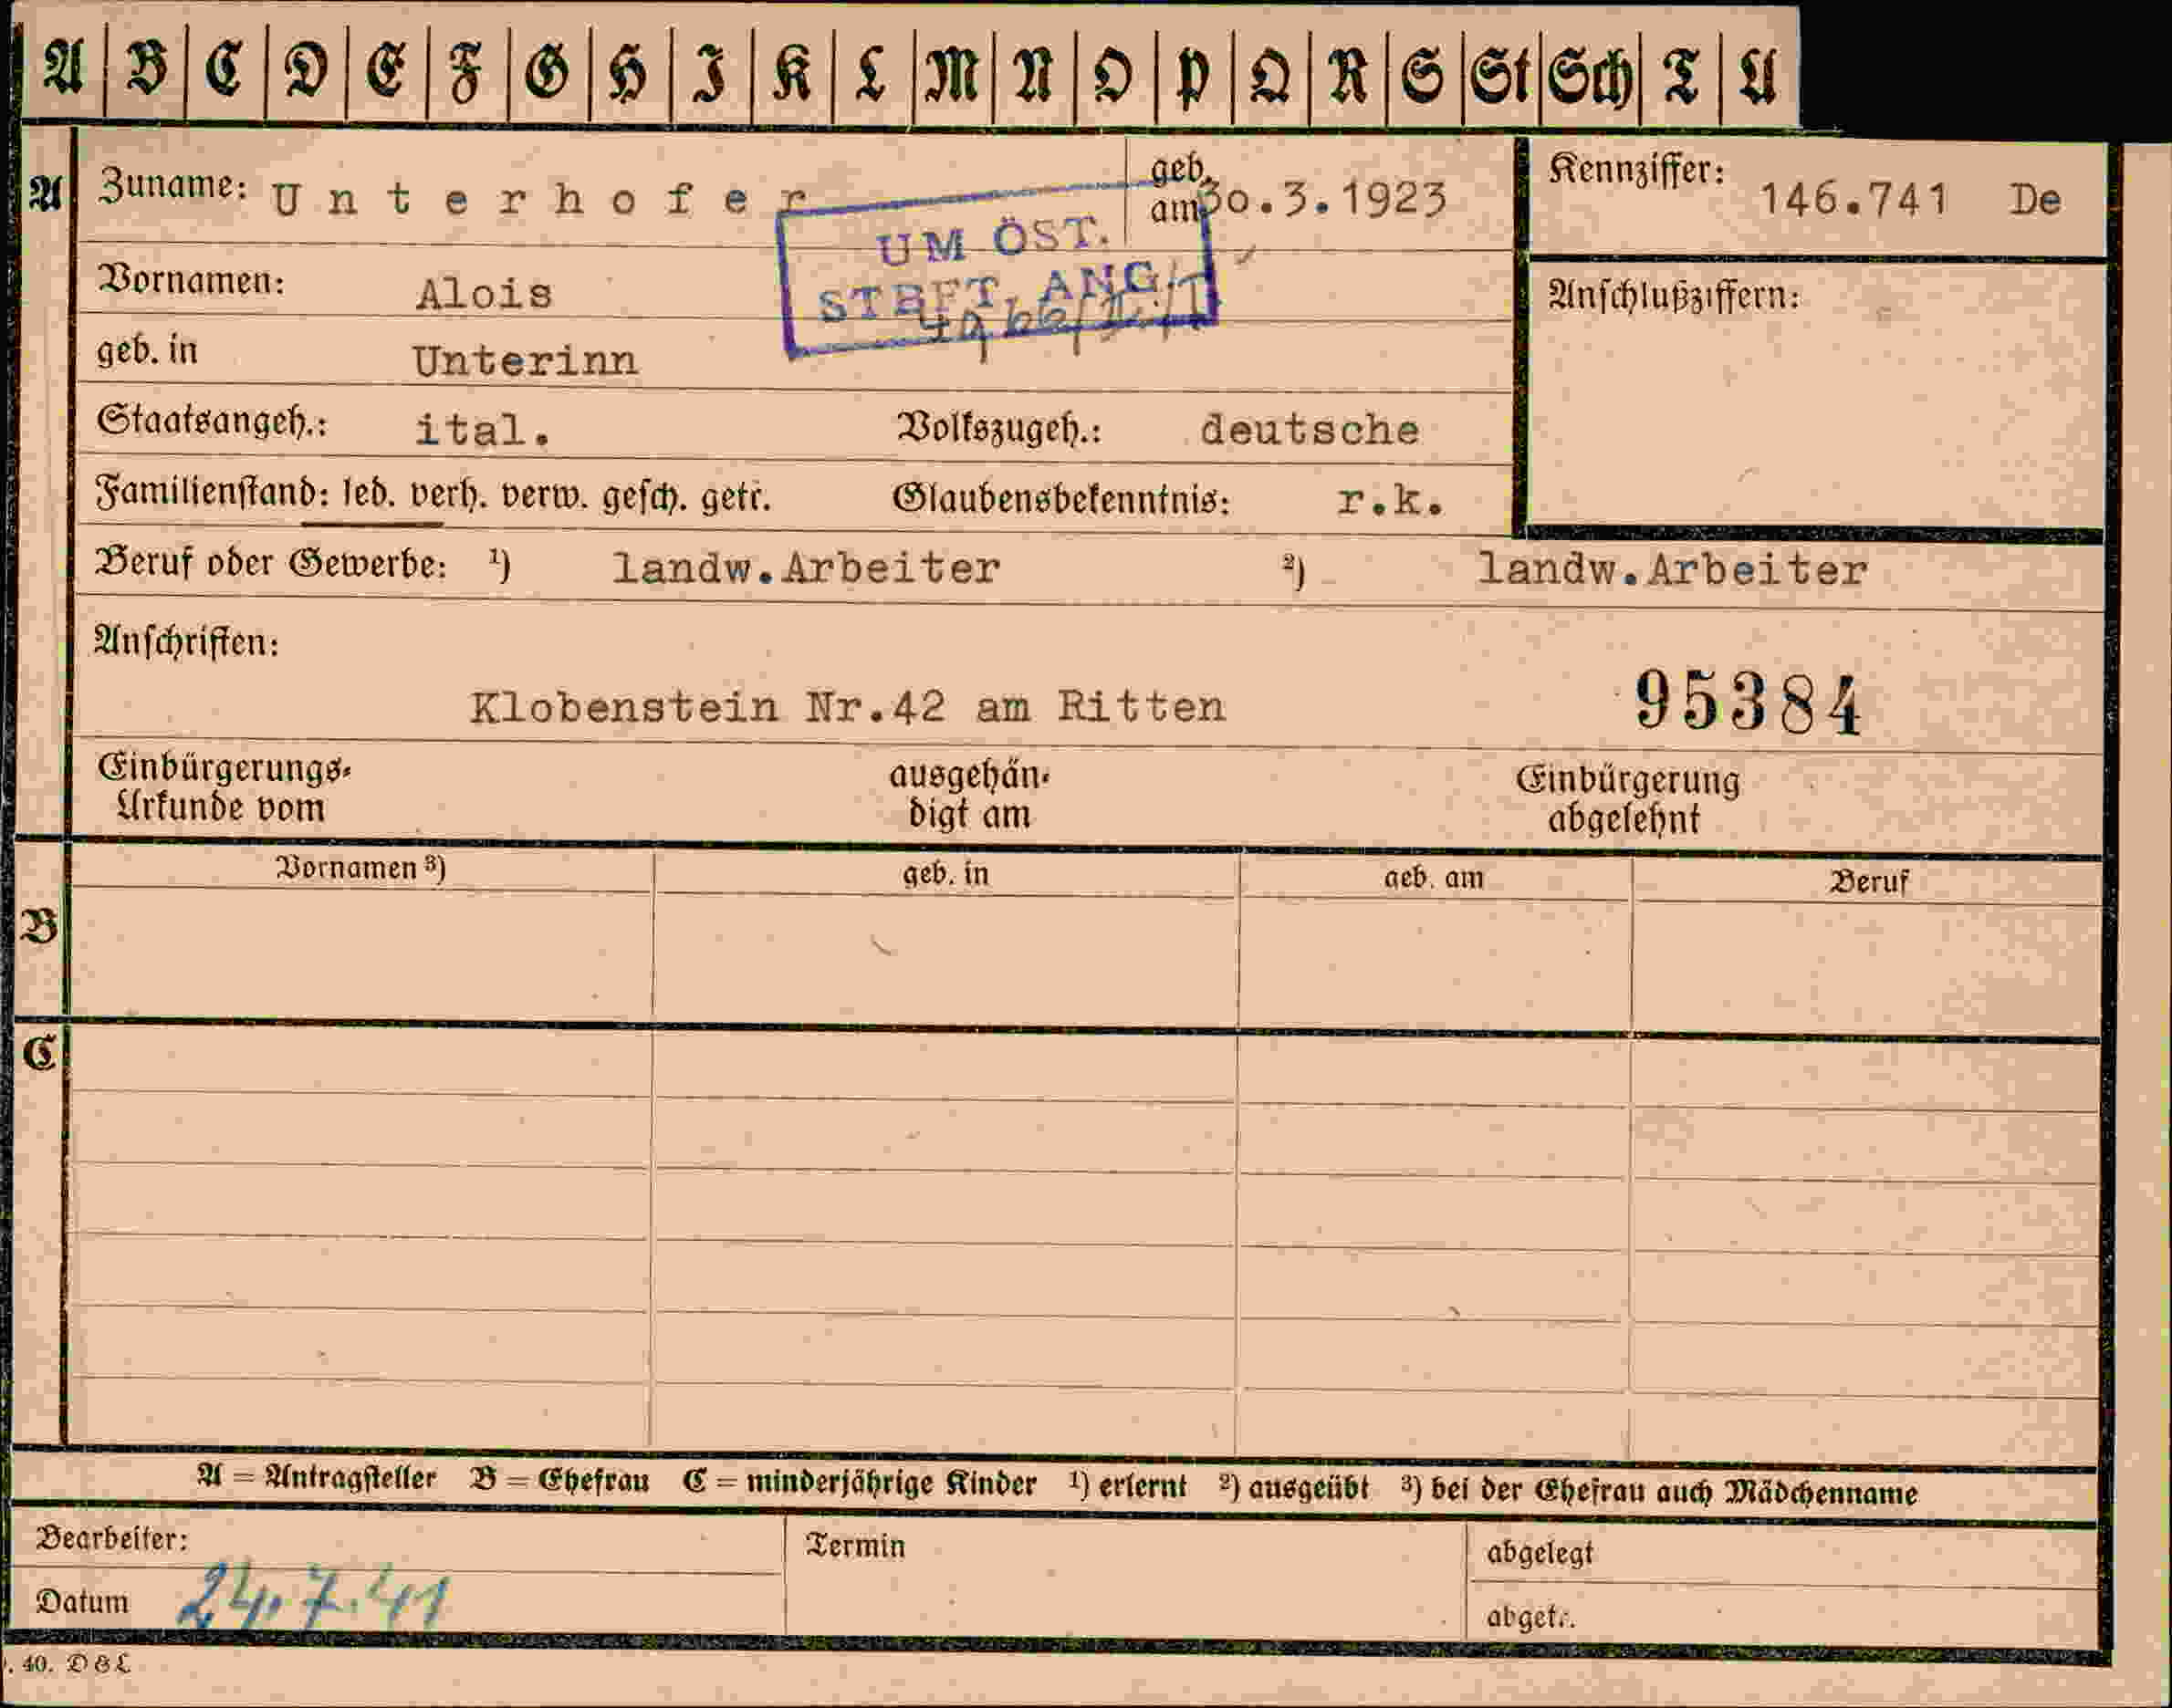 A | B | C | D | E | F | G | H | I | K | L | M | N | O | P | Q | R | S | St | Sch | T | U
A Zuname: Unterhofer geb. am 30.3.1923 Kennziffer: 146.741 De
UM ÖST. STBFT. ANG.
Vornamen: Alois Anschlußziffern:
geb. in Unterinn
Staatsangeh.: ital. Volkszugeh.: deutsche
Familienstand: led. verh. verw. gesch. getr. Glaubensbekenntnis: r.k.
Beruf oder Gewerbe: 1) landw.Arbeiter 2) landw.Arbeiter
Anschriften:
Klobenstein Nr.42 am Ritten 95384
Einbürgerungs- ausgehän- Einbürgerung
Urkunde vom digt am abgelehnt
Vornamen 3) geb. in geb. am Beruf
B
C
A = Antragsteller B = Ehefrau C = minderjährige Kinder 1) erlernt 2) ausgeübt 3) bei der Ehefrau auch Mädchenname
Bearbeiter: Termin abgelegt
Datum 24.7.41 abget.:
. 40. D & L